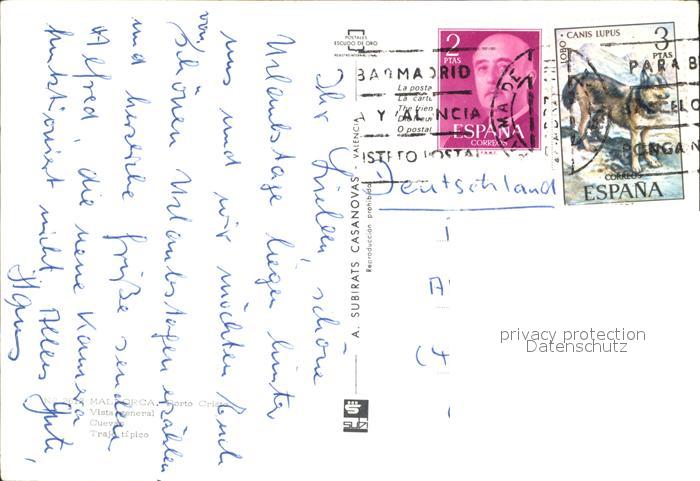 Ihr Lieben, schöne
Urlaubstage liegen hinter
uns und wir möchten Euch
von
schönen Urlaubstagen erzählen
und herzliche Grüße senden
Alfred, die neue Kamera
funktioniert nicht. Alles Gute,
Deutschland
POSTALES
ESCUDO DE ORO
A. SUBIRATS CASANOVAS - VALENCIA
Reproducción prohibida
MALLORCA. Porto Cristo
Vista general
Cuevas
Traje típico
2
PTAS
ESPAÑA
CORREOS
LOBO · CANIS LUPUS
3
PTAS
CORREOS
ESPAÑA
BARMADRID
PARA B
A Y VALENCIA
PONGA
La posta
The frien
O postal
privacy protection
Datenschutz